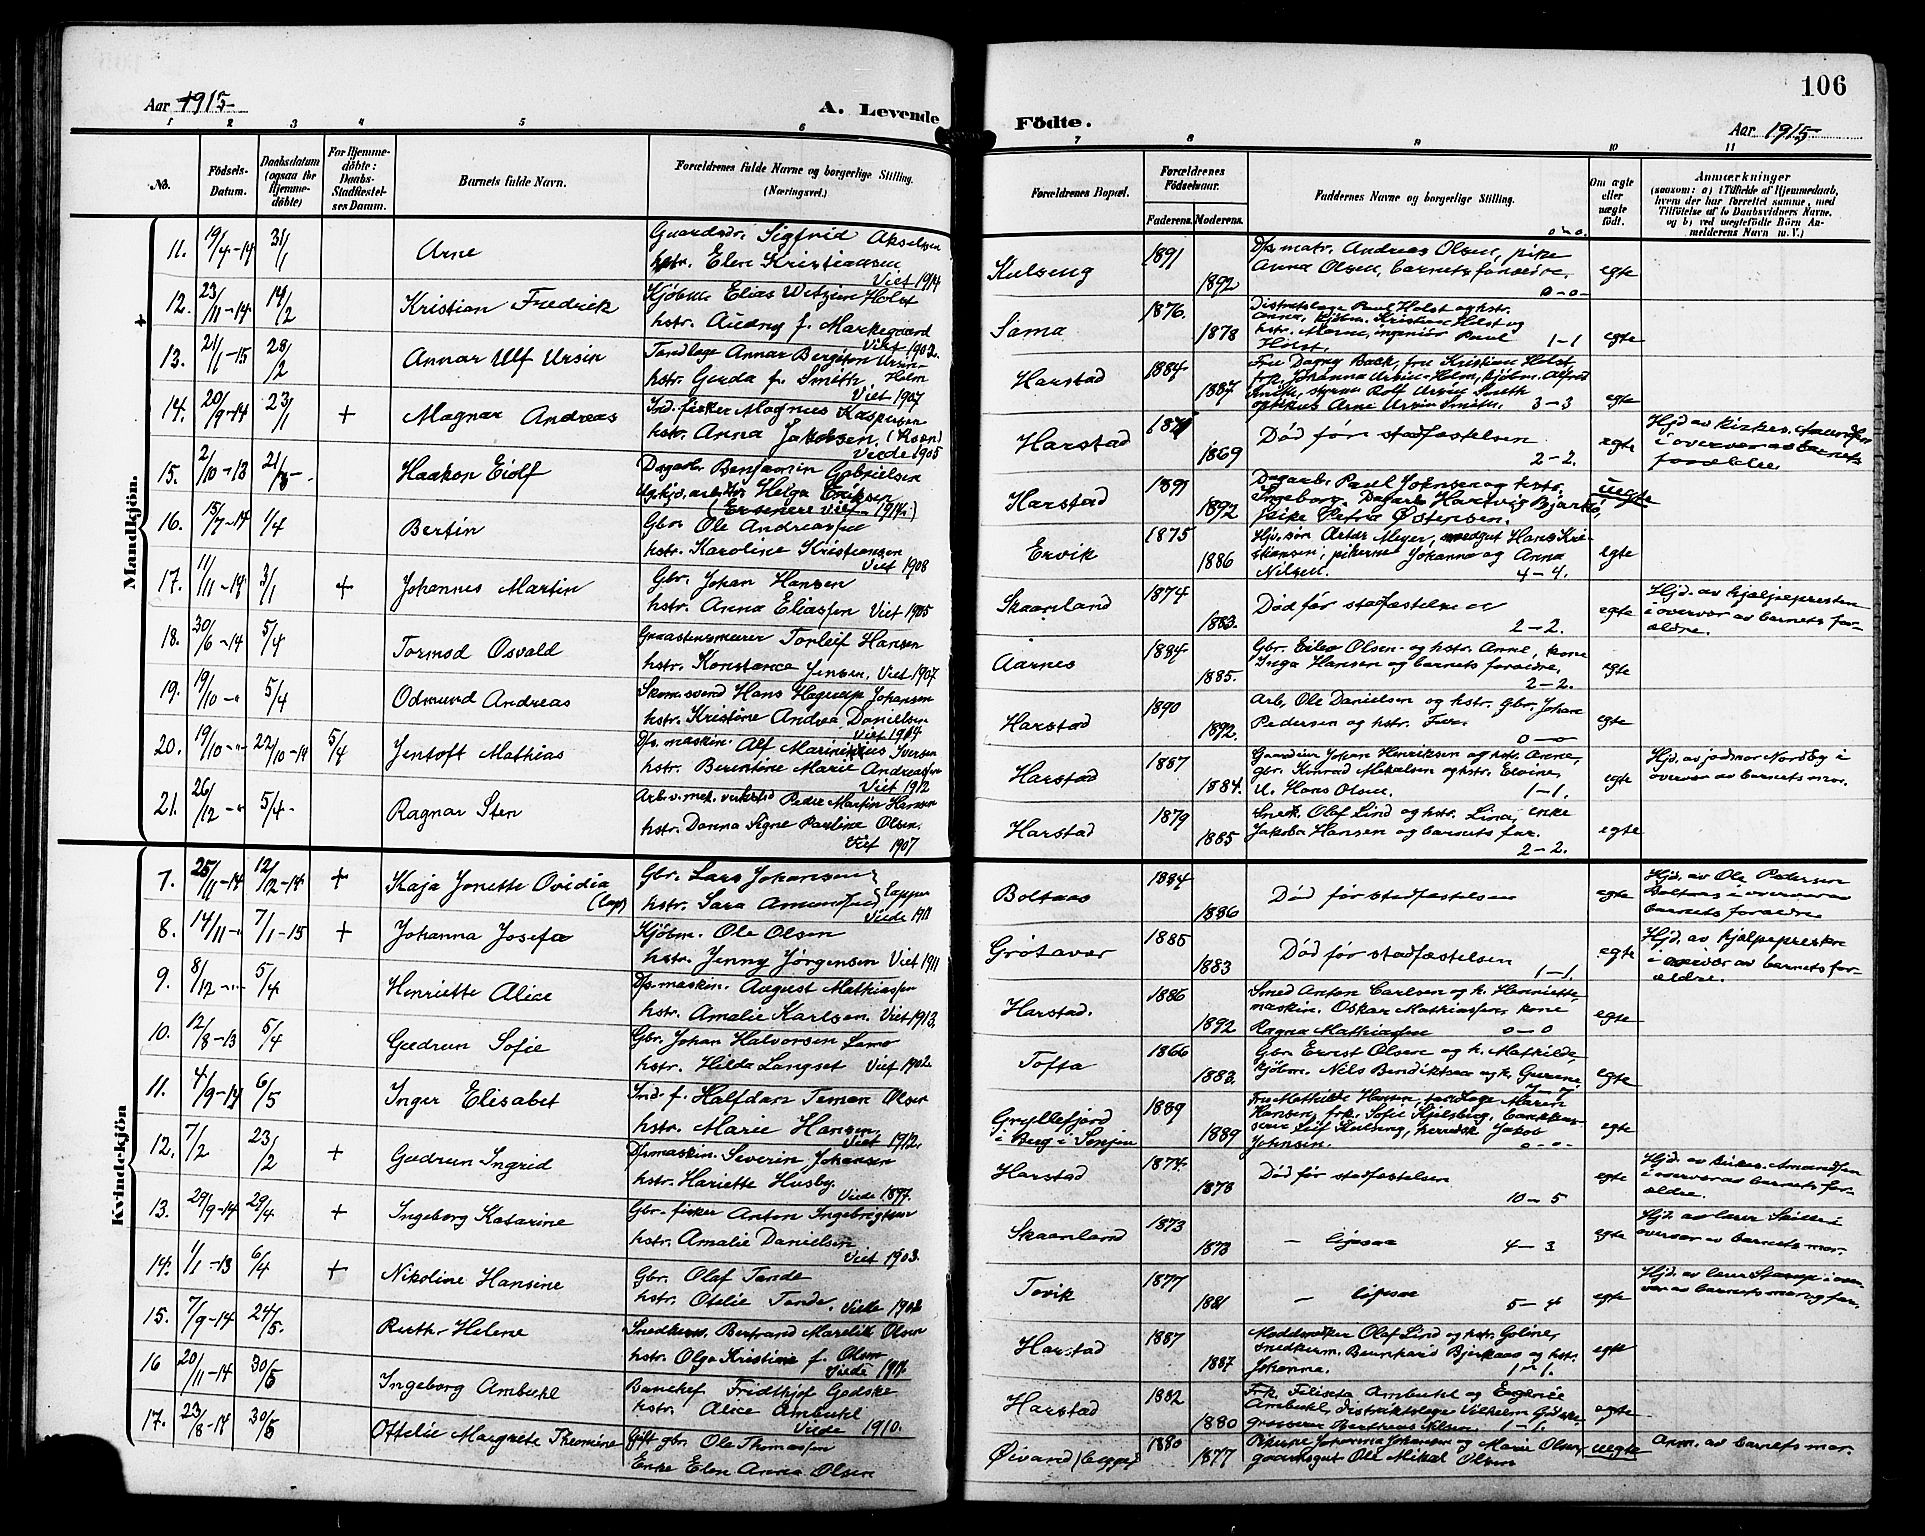 106
Aar 1915
A. Levende
Födte.
Aar 1915
1 2 3 4 5 6 7 8 9 10 11
No.
Födsels-
Datum.
Daabsdatum
(ogsaa for
Hjemme-
döbte)
For Hjemme-
döbte:
Daabs-
Stadfæstel-
ses Datum.
Barnets fulde Navn.
Forældrenes fulde Navne og borgerlige Stilling.
(Næringsvei.)
Forældrenes Bopæl.
Forældrenes
Födselsaar.
Faderens. Moderens.
Faddernes Navne og borgerlige Stilling.
Om ægte
eller
uægte
födt.
Anmærkninger
(saasom: a) i Tilfælde af Hjemmedaab,
hvem der har forrettet samme, med
Tilföielse af to Daabsvidners Navne.
og b) ved uægtefödte Börn An-
melderens Navn m. V.)
Mandkjön.
11. 19/4-14 31/1 Arne
Sigfrid Akselsen
hstr. Elen Kristiansen
Viet 1914
Kulseng 1891 1892
matr. Andreas Olsen, pike
Anna Olsen, barnets forældre.
0-0-
egte
12. 23/11-14 14/2 Kristian Fredrik
Kjøbm. Elias Holst
hstr. Audny f. Markegaard
Viet 1902.
Sama 1876. 1873
Distriktslæge Paul Holst og hstr.
Anna, kjøbm. Kristian Holst og
hstr. Marne, ingeniør Paul
Holst. 1-1
egte
13. 21/1-15 28/2 Annar Ulf Ursin
Tandlæge Annar Bergiton Ursin-
Holm
hstr. Gerda f. Smith.
Viet 1907
Harstad 1884 1887
Fru Dagny Back, fru Kristian Holst,
frk. Johanna Ursin-Holm, kjøbm. Alfred
Rolf Ursin Smith
Arne Ursin Smith. 3-3
egte
14. 20/9-14 23/1 + Magnar Andreas
Ind. fisker Magnus Kaspersen
hstr. Anna Jakobsen
Viede 1905
Harstad 1869
Død før stadfæstelsen
2-2.
egte
Hjd. av kirkes. Amundsen
i overvær av barnets
forældre
15. 2/10-13 21/3- Haakon Eiolf
Dagarb. Benjamin Gabrielsen
Helga Eriksen
(Er senere viet 1914.)
Harstad 1891 1892
Dagarb. Paul Johnsen og hstr.
Ingeborg. Dagarb. Hartvig Bjarkø,
pike Petra Østensen.
uegte
16. 15/7-14 1/4 Bertin
Gbr. Ole Andreassen
hstr. Karoline Kristiansen
Viet 1908
Ervik 1875 1886
Hjv. søn Artur Meyer, Hans Kri-
stiansen, pikerne Johanna og Anna
Nilsen. 4-4.
egte
17. 11/11-14 3/1 + Johannes Martin
Gbr. Johan Hansen
hstr. Anna Eliassen Viet 1905
Skaanland 1874 1883.
Død før stadfæstelsen
2-2.
egte
Hjd. av hjælpepresten
i overvær av barnets for-
ældre.
18. 30/6-14 5/4 Tormod Osvald
Graastensmurer Torleif Hansen
hstr. Konstance Jensen, Viet 1907
Aarnes 1884 1885.
Gbr. Olsen og hstr. Anne, kone
Inga Hansen og barnets forældre.
2-2.
egte
19. 19/10-" 5/4 Odmund Andreas
Skom.svend Hans Hagerup Johansen
hstr. Kristine Andrea Danielsen
Viet 1914
Harstad 1890 1892.
Arb. Ole Danielsen og hstr. gbr. Johan
Pedersen og hstr.
0-0
egte
20. 19/10-" 22/10-14 5/4 Jentoft Mathias
D/s. maskin. Alf Marinius Iversen
hstr. Berentine Marie Andreassen
Viet 1912
Harstad 1887 1884.
Johan Henriksen og hstr. Anne,
gbr. Konrad Mikalsen og hstr.
U. Hans Olsen. 1-1.
egte
Hjd. av jodmor Nordby i
overvær av barnets mor.
21. 26/12-" 5/4- Ragnar Sten
Arb. v. mek. verksted Peder Martin Hansen
hstr. Danna Signe Pauline Olsen.
Viet 1907
Harstad 1879 1885
Snedk. Olaf Lind og hstr. Lina, enke
Jakoba Hansen og barnets far.
2-2.
egte
Kvindekjön
7. 25/11-14 12/12-14 + Kaja Jonette Ovidia
(Lap)
Gbr. Lars Johansen
hstr. Sara Amundsen
Lapper
Viede 1911
Boltaas 1884 1886
Død før stadfæstelsen
egte
Hjd. av Ole Pedersen
Boltaas i overvær av
barnets forældre
8. 14/11-" 7/1-15 + Johanna Josefa
Kjøbm. Ole Olsen
hstr. Jenny Jørgensen Viet 1911
Grøtavær 1885 1883
Død før stadfæstelsen
1-1
egte
Hjd. av hjælpepresten
i overvær av barnets for-
ældre.
9. 8/12-" 5/4 Henriette Alice
D/s. maskin. August Mathiassen
hstr. Amalie Karlsen. Viet 1913.
Harstad. 1886 1892
Smed Anton Carlsen og h. Henriette,
maskin. Oskar Mathiassen, kone
Ragna Mathiassen 0-0
egte
10. 12/8-13 5/4 Gudrun Sofie
Gbr. Johan Halvorsen Lamo
hstr. Hilda Langset Viet 1902.
Tofta 1866 1883.
Gbr. Ernst Olsen og h. Mathilde,
kjøbm. Nils Bendiktsen og h.
egte
11. 4/9-14 6/5 Inger Elisabet
Ind. f. Halfdan Olsen
hstr. Marie Hansen
Viet 1912.
Gryllefjord
i Berg i Senjen 1889 1889
Fru Mathilde Hansen, tandlæge Maren
Hansen, frk. Sofie
Jakob
Johnsen. 0-0-
egte
12. 7/2 23/2 + Gudrun Ingrid
D/smaskin. Severin Johansen
hstr. Hariette Husby.
Viede 1897.
Harstad 1874. 1873
Død før stadfæstelsen
10-5
egte
Hjd. av kirkes. Amundsen
i overvær av barnets for-
ældre.
13. 29/9-14 29/4 + Ingeborg Katarine
Gbr.-fisker Anton Ingebrigtsen
hstr. Amalie Danielsen
Viet 1903.
Skaanland 1873 1873
- ligesaa 4-3
egte
Hjd. av lærer i
overvær av barnets mor.
14. 1/1-13 6/4 + Nikoline Hansine
Gbr. Olaf Tande
hstr. Otelie Tande. Viede 1902
Tovik 1877 1881
- ligesaa 5-4
egte
Hjd. av lærer i over-
vær av barnets mor og far.
15. 7/9-14 24/5. Ruth Helene
Snedkerm. Bertrand Marelik Olsen
hstr. Olga Kristine f. Olsen
Viede
Harstad 1887 1887
Olaf Lind og hstr. Goline,
snedkerm. Bernhard Bjerkaas og hstr.
Johanna. 1-1.
egte
16 20/11-14 30/5 Ingeborg Ambuhl
Banchef Fridthjof Gedske
hstr. Alice Ambuhl
Viede 1910.
Harstad 1882 1880
Frk. Ambuhl og Eugenie
Ambuhl, distriktslæge Vilhelm
1-1.
egte
17. 23/8-14 30/5 Ottelie Margrete Theomine
Gift gbr. Ole Thomassen
Enke Elen Anna Olsen
Øivand (Lapper) 1880 1877
Pikerne Johanna Johansen og Marie Olsen,
gaardsgut Ole Mikal Olsen
uegte
Anm. av barnets mor.